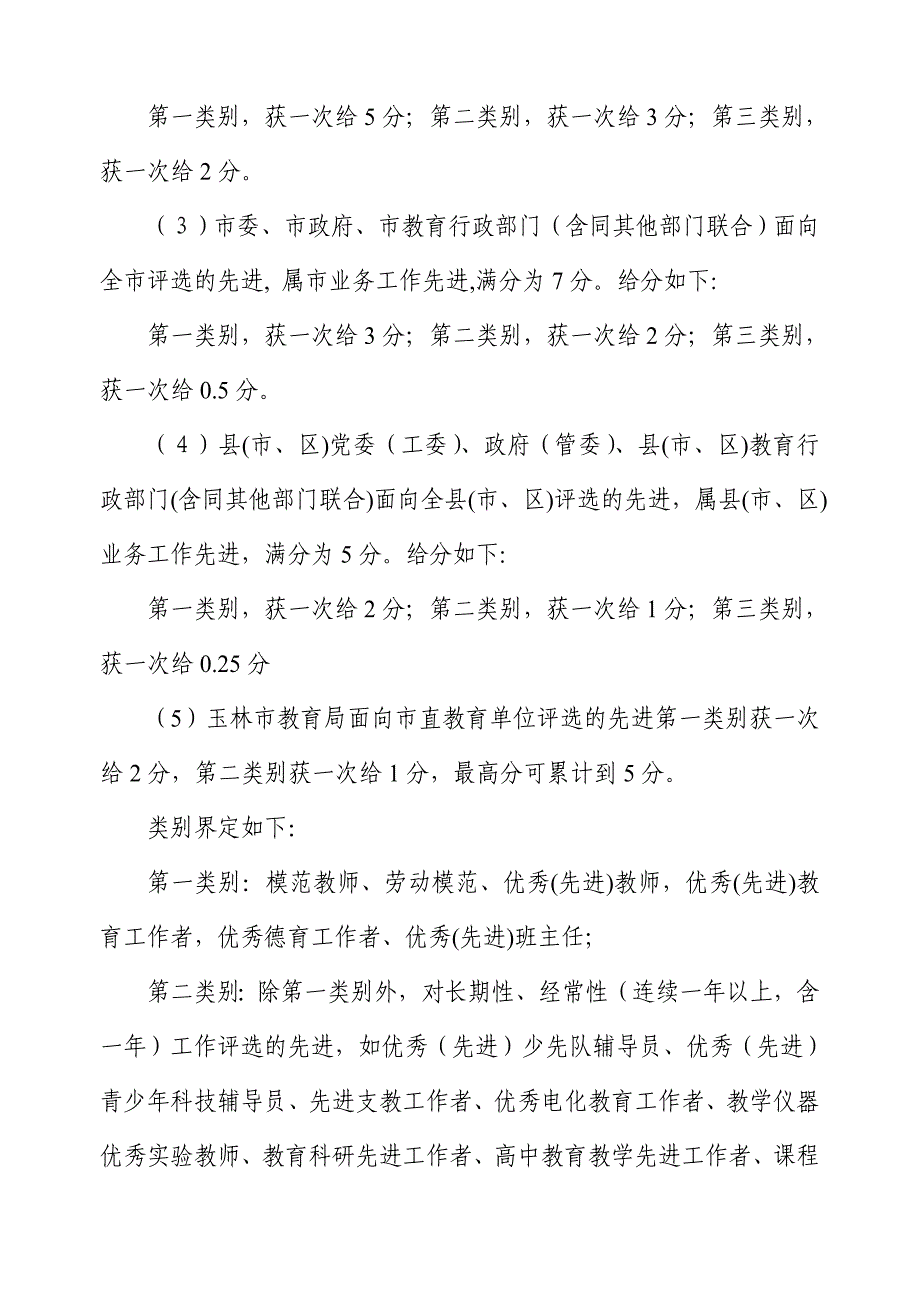 第一类别，获一次给 5 分；第二类别，获一次给 3 分；第三类别，
获一次给 2 分。
（3）市委、市政府、市教育行政部门（含同其他部门联合）面向
全市评选的先进, 属市业务工作先进,满分为 7 分。给分如下：
第一类别，获一次给 3 分；第二类别，获一次给 2 分；第三类别，
获一次给 0.5 分。
（4）县(市、区)党委（工委）、政府（管委）、县(市、区)教育行
政部门(含同其他部门联合)面向全县(市、区)评选的先进，属县(市、区)
业务工作先进，满分为 5 分。给分如下：
第一类别，获一次给 2 分；第二类别，获一次给 1 分；第三类别，
获一次给 0.25 分
（5）玉林市教育局面向市直教育单位评选的先进第一类别获一次
给 2 分，第二类别获一次给 1 分，最高分可累计到 5 分。
类别界定如下：
第一类别：模范教师、劳动模范、优秀(先进)教师，优秀(先进)教
育工作者，优秀德育工作者、优秀(先进)班主任；
第二类别：除第一类别外，对长期性、经常性（连续一年以上，含
一年）工作评选的先进，如优秀（先进）少先队辅导员、优秀（先进）
青少年科技辅导员、先进支教工作者、优秀电化教育工作者、教学仪器
优秀实验教师、教育科研先进工作者、高中教育教学先进工作者、课程